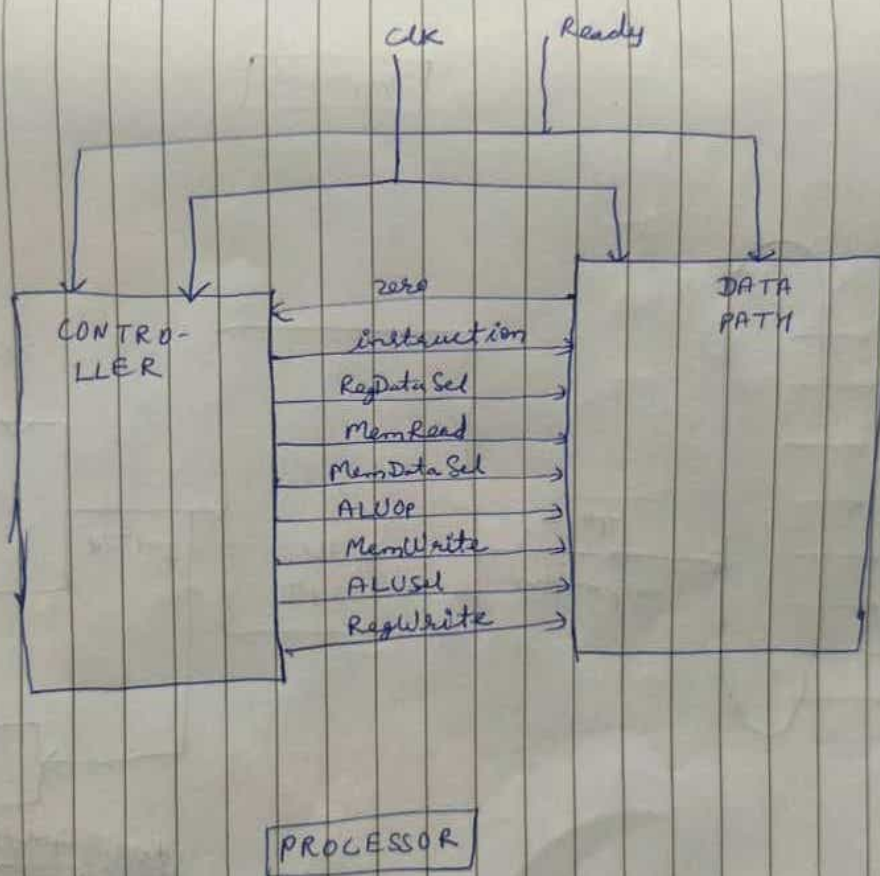 Clk Ready
zero
DATA
PATH
CONTRO-
LLER
instruction
RegDataSel
MemRead
MemDataSel
ALUOp
MemWrite
ALUSel
RegWrite
PROCESSOR